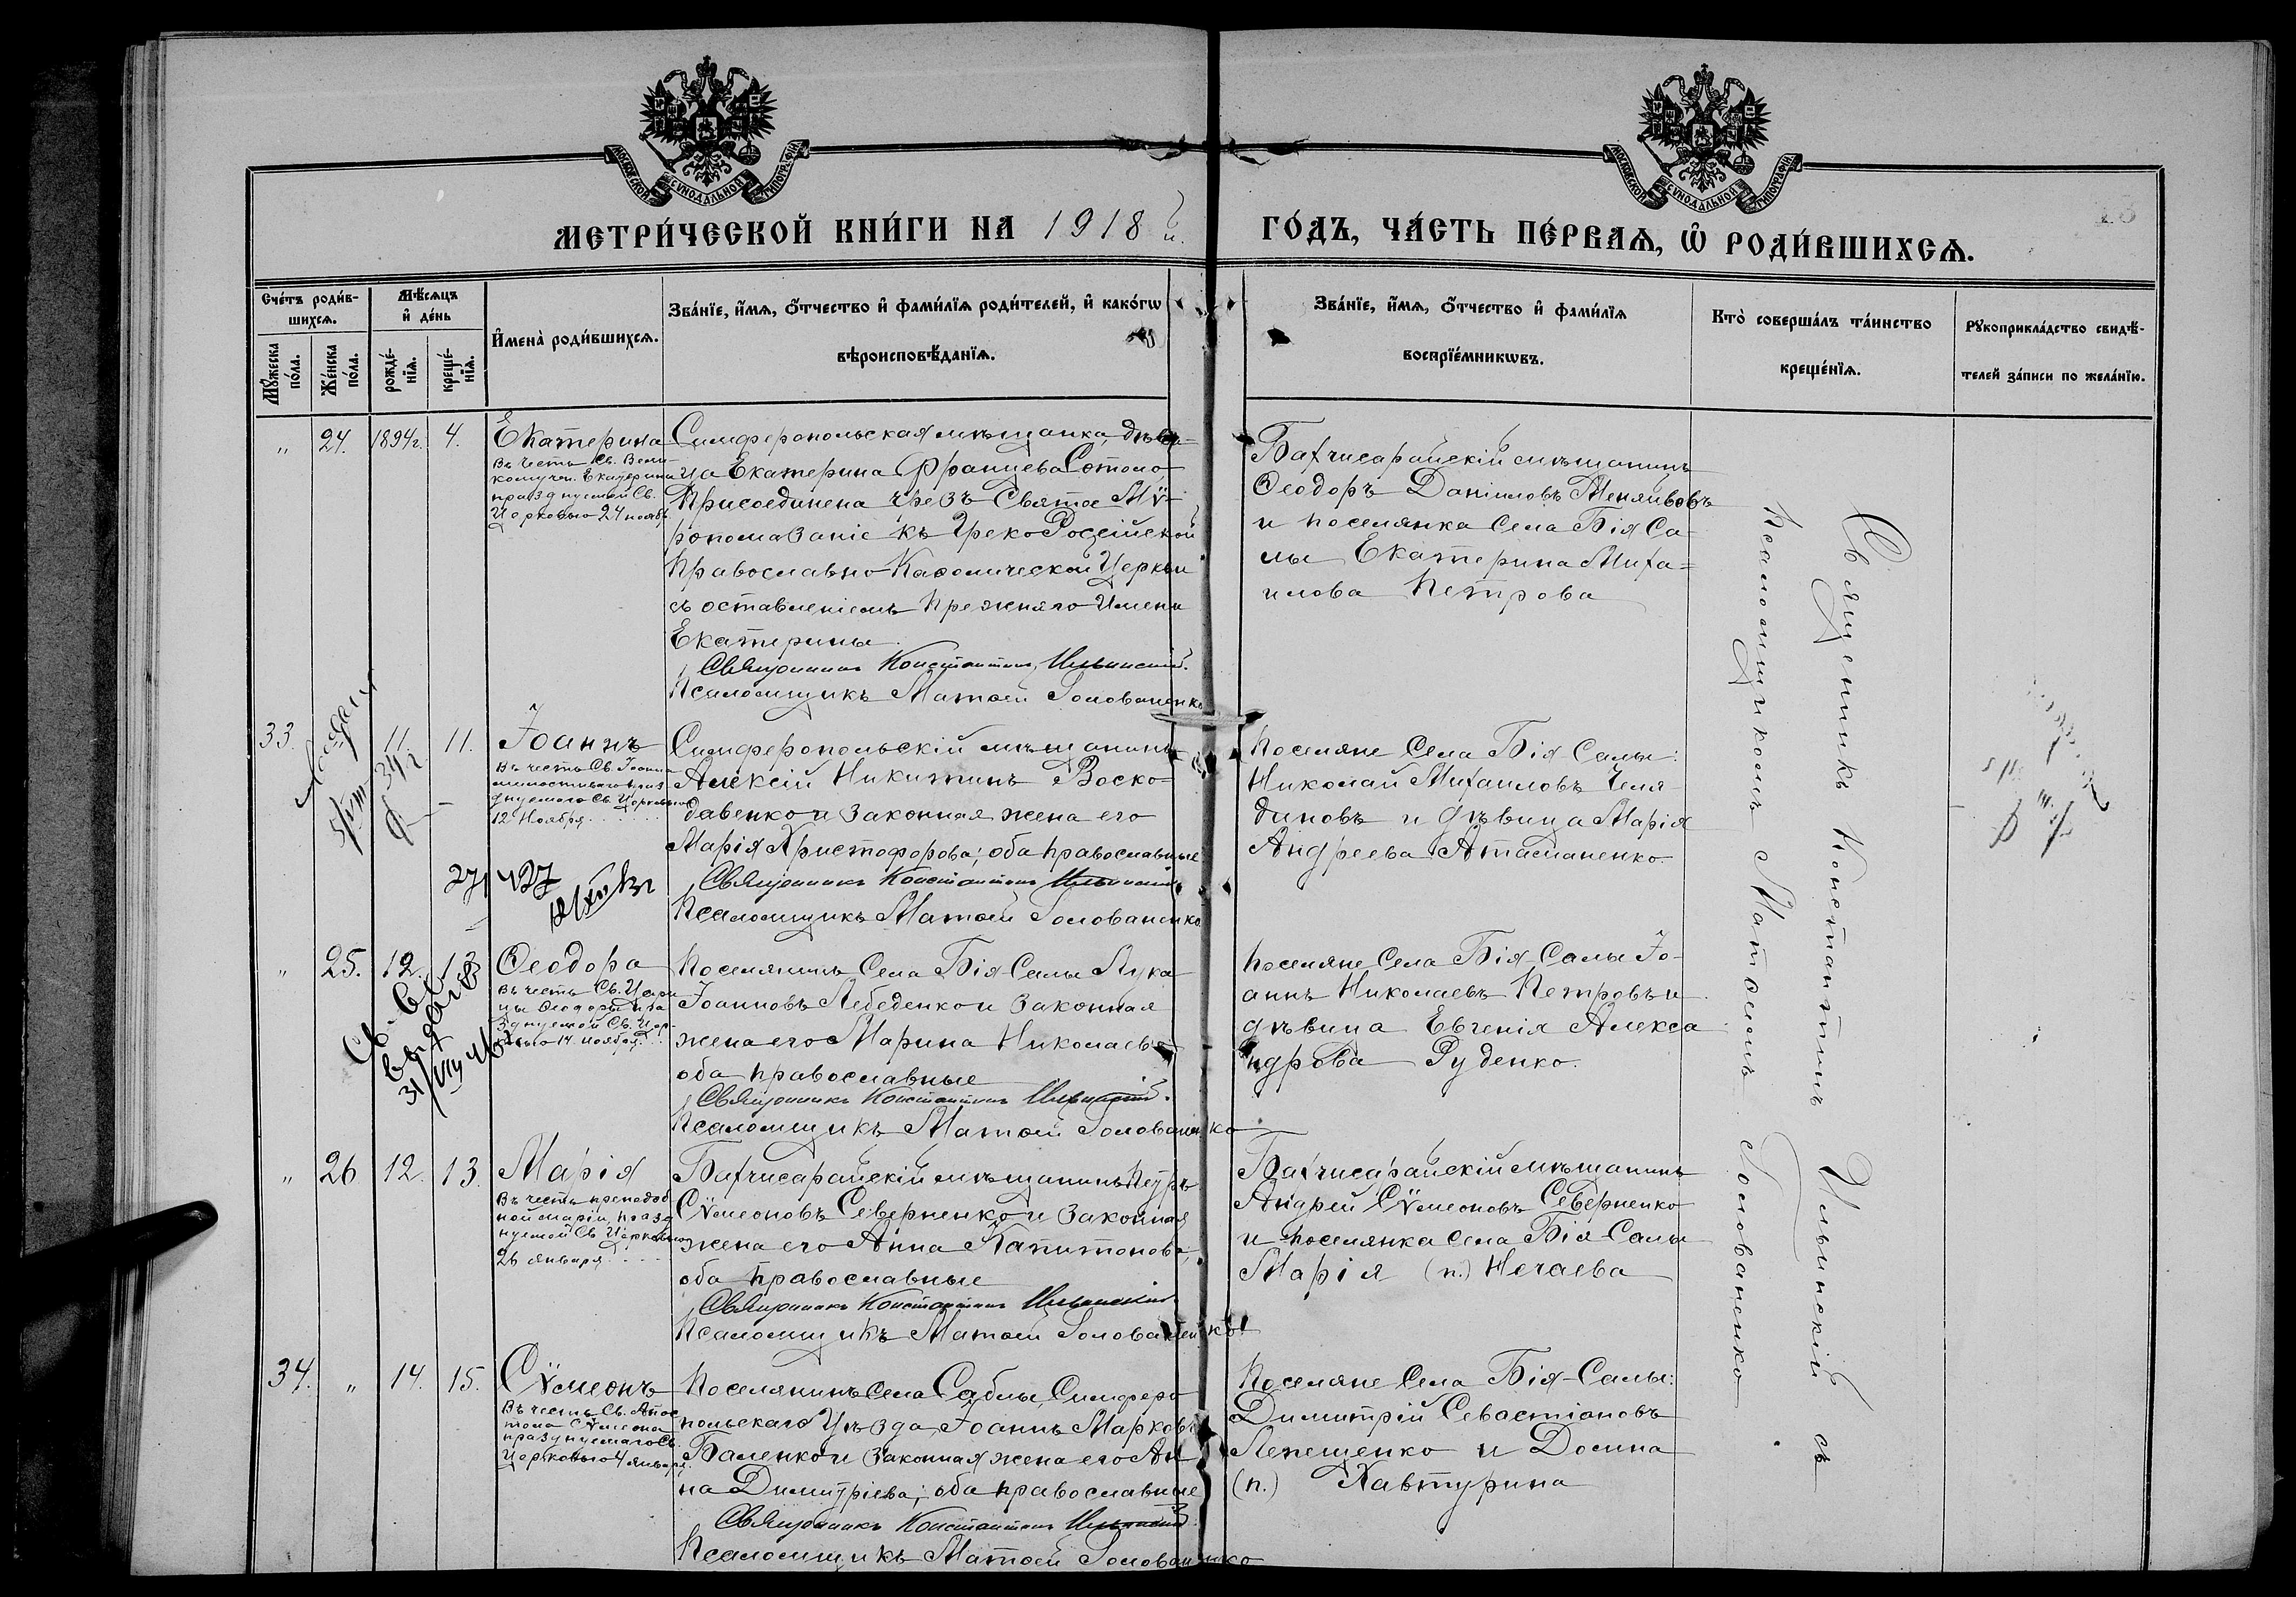 МОСКОВСКОЙ СѴНОДАЛЬНОЙ ТИПОГРАФІИ
МОСКОВСКОЙ СѴНОДАЛЬНОЙ ТИПОГРАФІИ
МЕТРИ́ЧЕСКОЙ КНИ́ГИ НА 1918 ГО́ДЪ, ЧА́СТЬ ПЕ́РВАѦ, Ѡ҆ РОДИ́ВШИХСѦ.
Сче́тъ роди́в-
шихсѧ.
Мꙋ́жеска
по́ла.
Же́нска
по́ла.
Мѣ́сѧцъ
и҆ де́нь
рожде́-
нїѧ.
креще́-
нїѧ.
И҆мена̀ роди́вшихсѧ.
Зва́нїе, и҆́мѧ, ѻ҆́тчество и҆ фами́лїѧ роди́телей, и҆ како́гѡ
вѣроисповѣ́данїѧ.
Зва́нїе, и҆́мѧ, ѻ҆́тчество и҆ фами́лїѧ
воспрїе́мникѡвъ.
Кто̀ соверша́лъ та́инство
креще́нїѧ.
Рꙋкоприкла́дство свидѣ́-
телей за́писи по жела́нїю.
„ 24. 1894г. 4.
Екатерина
Въ честь Св. Вели-
комучен. Екатерины
празднуемой Св.
Церковью 24 нояб.
Симферопольская мѣщанка, дѣви-
ца Екатерина Францева Сотоло
Присоединена чрезъ Святое Мѵ-
ропомазаніе къ Греко Россійской
Православно-Каѳолической Церкви
съ оставленіемъ прежняго имени
Екатерины.
Священникъ Константинъ Ильинскій.
Псаломщикъ Матѳей Голованенко
Бахчисарайскій мѣщанинъ
Ѳеодоръ Даніиловъ Меняйвовъ
и поселянка села Бія Са-
лы Екатерина Миха=
илова Петрова
33. „ 11. 11.
Іоаннъ
Въ честь Св. Іоанна
милостиваго праз-
днуемаго Св. Церковью
12 Ноября
Симферопольскій мѣщанинъ
Алексій Никитинъ Воско-
давенко и законная жена его
Марія Христофорова; оба православные
Священникъ Константинъ Ильинскій
Псаломщикъ Матѳей Голованенко
Поселяне Села Бія Салы:
Николай Михаиловъ Челя-
диновъ и дѣвица Марія
Андреева Атаманенко
„ 25. 12. 13
Ѳеодора
Въ честь Св. Цари-
цы Ѳеодоры пра-
зднуемой Св. Цер-
ковью 14 ноября
Св-во
выдано
Поселянинъ Села Бія-Салы Лука
Іоанновъ Лебеденко и законная
жена его Марина Николаева
оба православные
Священникъ Константинъ Ильинскій.
Псаломщикъ Матѳей Голованенко
Поселяне Села Бія-Салы Іо-
аннъ Николаевъ Петровъ и
дѣвица Евгенія Алекса-
ндрова Руденко.
„ 26 12. 13.
Марія
Въ честь преподоб-
ной Маріи, празд-
нуемой Св. Церковью
26 января
Бахчисарайскій мѣщанинъ Петръ
Сѵмеоновъ Северненко и законная
жена его Анна Капитонова,
оба православные
Священникъ Константинъ Ильинскій
Псаломщикъ Матѳей Голованенко
Бахчисарайскій мѣщанинъ
Андрей Сѵмеоновъ Северненко
и поселянка села Бія-Салы
Марія (п.) Нечаева
34. „ 14. 15.
Сѵмеонъ
Въ честь Св. Апос-
тола Сѵмеона
празднуемаго Св.
Церковью 4 января
Поселянинъ села Саблы, Симферо-
польскаго Уѣзда, Іоаннъ Марковъ
Баленко и законная жена его Ан-
на Димитріева; оба православные
Священникъ Константинъ Ильинскій
Псаломщикъ Матѳей Голованенко
Поселяне Села Бія-Салы:
Димитрій Севастіановъ
Лепешенко и Домна
(п.) Хавтурина
Священникъ Константинъ Ильинскій съ
псаломщикомъ Матѳеемъ Голованенко